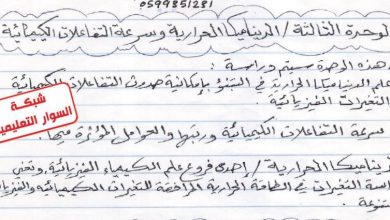 0599851281
لوحدة الثالثة / الديناميكا الحرارية وسرعة التفاعلات الكيميائية
هذه الوحدة سيتم دراسة :
علم الديناميكا الحرارية في التنبؤ بإمكانية حدوث التفاعلات الكيميائية
التغيرات الفيزيائية .
سرعة التفاعلات الكيميائية ورتبها والعوامل المؤثرة فيها .
ديناميكا الحرارية / إحدى فروع علم الكيمياء الفيزيائية وتعني
اسة التغيرات في الطاقة الحرارية المرافقة للتغيرات الكيميائية والفيزيا
تنوعة .
شبكة
السوار التعليمية